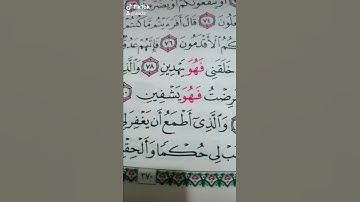 TikTok
أَوْ يَنفَعُونَكُمْ أَوْ يَضُرُّ
عَلُونَ ٧٤ قَالَ أَفَرَءَيْتُم مَّا كُنتُمْ
كُمُ ٱلْأَقْدَمُونَ ٧٦ فَإِنَّهُمْ عَدُوٌّ
خَلَقَنِى فَهُوَ يَهْدِينِ ٧٨ وَٱلَّذِ
رِضْتُ فَهُوَ يَشْفِينِ
وَٱلَّذِىٓ أَطْمَعُ أَن يَغْفِرَ لِى
بْ لِى حُكْمًا وَأَلْحِقْ
٣٧٠